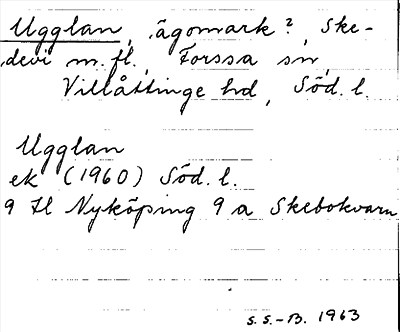 Ugglan, ägomark?, Ske-
devi m. fl., Forssa sn,
Villåttinge hd, Söd. l.
Ugglan
ek (1960) Söd. l.
9 H Nyköping 9 a Skebokvarn
S. S.-B. 1963